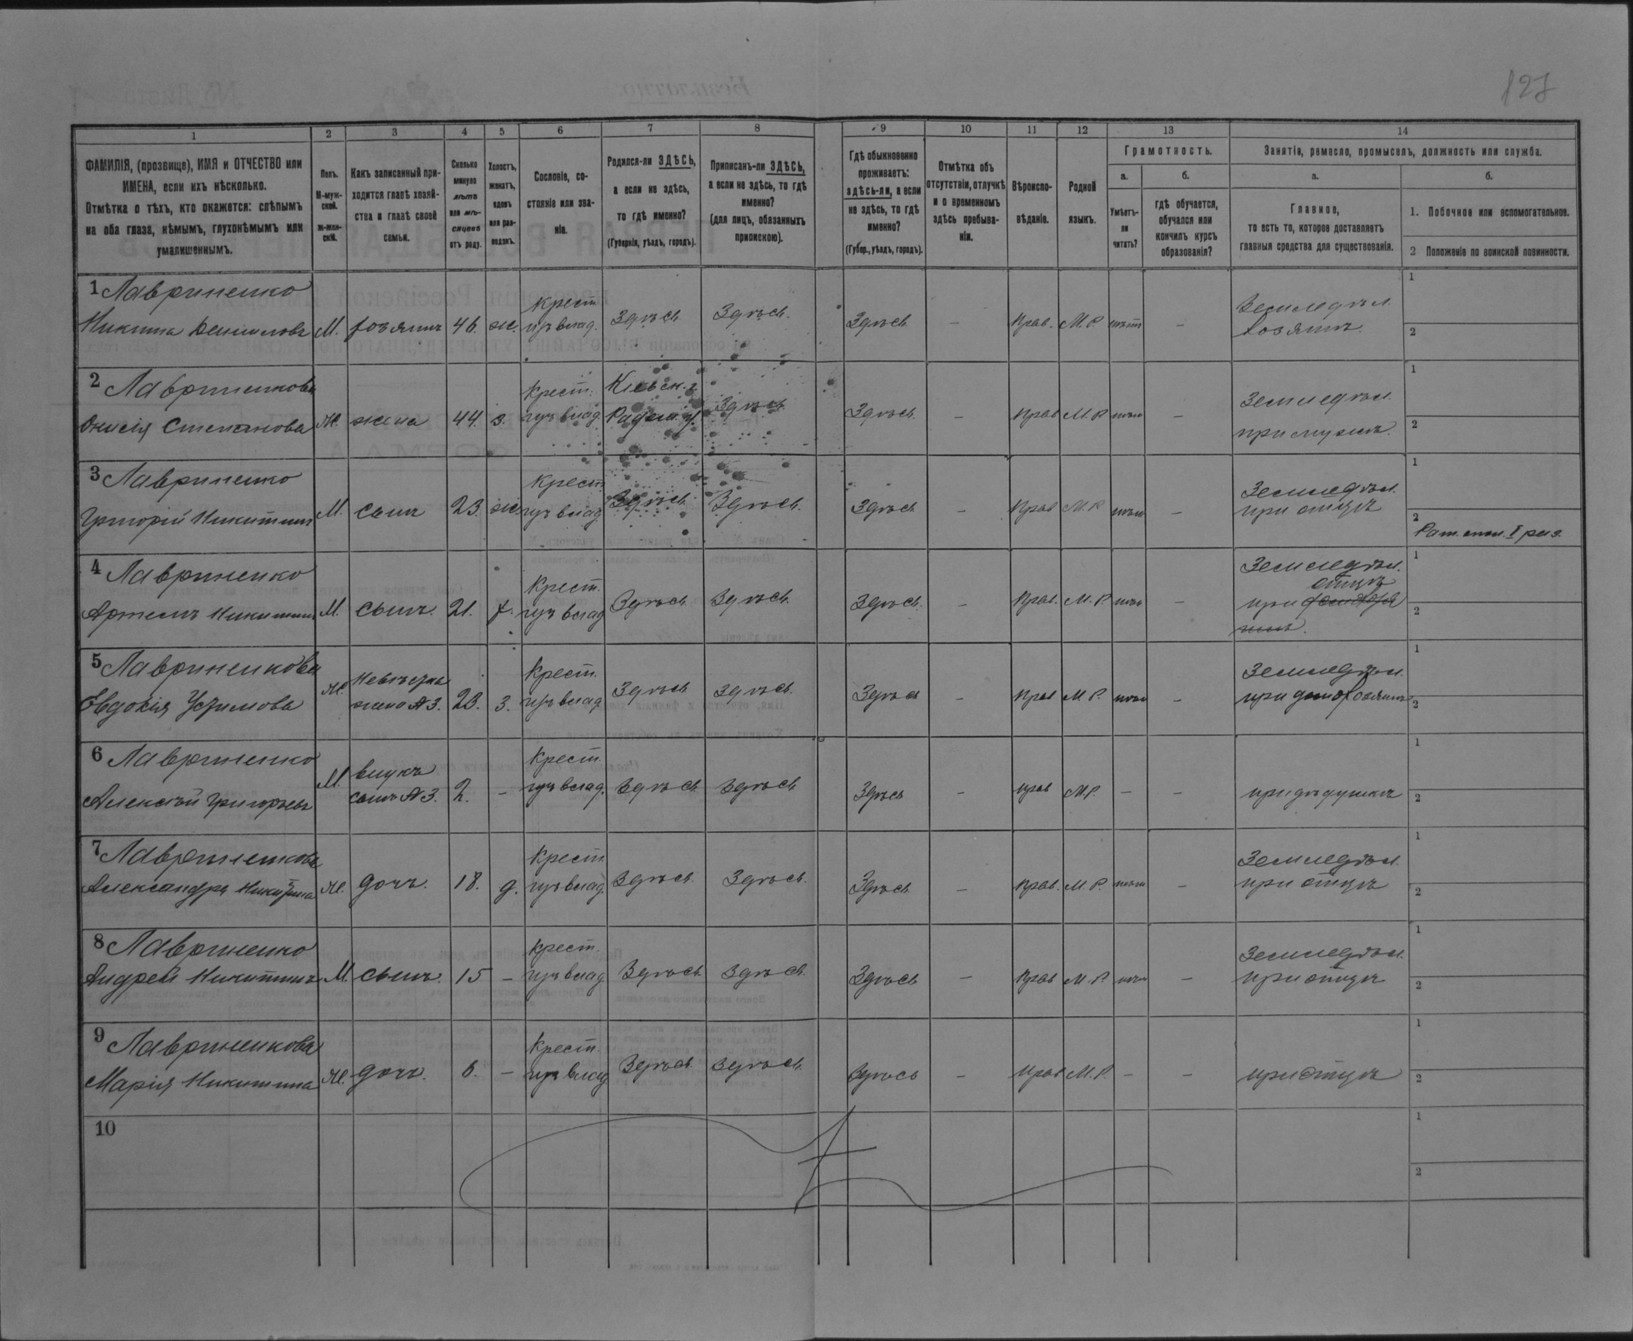 127
1
2
3
4
5
6
7
8
9
10
11
12
13
14
ФАМИЛІЯ, (прозвище), ИМЯ и ОТЧЕСТВО или
ИМЕНА, если ихъ нѣсколько.
Отмѣтка о тѣхъ, кто окажется: слѣпымъ
на оба глаза, нѣмымъ, глухонѣмымъ или
умалишеннымъ.
Полъ.
М-муж-
ской.
Ж-жен-
скій.
Какъ записанный при-
ходится главѣ хозяй-
ства и главѣ своей
семьи.
Сколько
минуло
лѣтъ
или мѣ-
сяцевъ
отъ роду.
Холостъ,
женатъ,
вдовъ
или раз-
веденъ.
Сословіе, со-
стояніе или зва-
ніе.
Родился-ли ЗДѢСЬ,
а если не здѣсь,
то гдѣ именно?
(Губернія, уѣздъ, городъ).
Приписанъ-ли ЗДѢСЬ,
а если не здѣсь, то гдѣ
именно?
(для лицъ, обязанныхъ
припискою).
Гдѣ обыкновенно
проживаетъ:
здѣсь-ли, а если
не здѣсь, то гдѣ
именно?
(Губер., уѣздъ, городъ).
Отмѣтка объ
отсутствіи, отлучкѣ
и о временномъ
здѣсь пребыва-
ніи.
Вѣроиспо-
вѣданіе.
Родной
языкъ.
Грамотность.
а.
Умѣетъ-
ли
читать?
б.
гдѣ обучается,
обучался или
кончилъ курсъ
образованія?
Занятіе, ремесло, промыселъ, должность или служба.
а.
Главное,
то есть то, которое доставляетъ
главныя средства для существованія.
б.
1. Побочное или вспомогательное.
2 Положеніе по воинской повинности.
1 Лавриненко
Никита Даниловъ М. хозяинъ 46 ж. Крест. изъ влад. Здѣсь Здѣсь Здѣсь – Прав. М.Р нѣтъ – Земледѣл. хозяинъ
1
2
2 Лавриненкова
Онисія Степанова Ж. жена 44. з. Крест. изъ влад. Кіевск. г. Радом. у. Здѣсь Здѣсь – Прав М.Р нѣтъ – Земледѣл. при мужѣ
1
2
3 Лавриненко
Григорій Никитинъ М. сынъ 23. ж. Крест изъ влад Здѣсь Здѣсь Здѣсь – Прав М.Р нѣтъ – Земледѣл. при отцѣ
1
2 Рат. опол. I раз.
4 Лавриненко
Артемъ Никитинъ М. сынъ. 21. х. Крест. изъ влад Здѣсь Здѣсь Здѣсь – Прав. М.Р нѣтъ – Земледѣл. при отцѣ
1
2
5 Лавриненкова
Евдокія Ефимова Ж. невѣстка жена №3. 23. з. Крест. изъ влад Здѣсь Здѣсь Здѣсь – Прав М.Р. нѣтъ – Земледѣл.
1
2
6 Лавриненко
Алексѣй Григорьевъ М внукъ сынъ №3. 2. – Крест. изъ влад. Здѣсь Здѣсь Здѣсь – Прав М.Р. – – при дѣдушкѣ
1
2
7 Лавриненкова
Александра Никитина Ж. дочь. 18. д. Крест. изъ влад. Здѣсь Здѣсь Здѣсь – Прав. М.Р. нѣтъ – Земледѣл. при отцѣ
1
2
8 Лавриненко
Андрей Никитинъ М. сынъ. 15 – Крест. изъ влад Здѣсь Здѣсь Здѣсь – Прав М.Р. нѣтъ – Земледѣл. при отцѣ
1
2
9 Лавриненкова
Марія Никитина Ж. дочь. 6. – Крест. изъ влад Здѣсь Здѣсь Здѣсь – Прав М.Р. – – при отцѣ
1
2
10
1
2